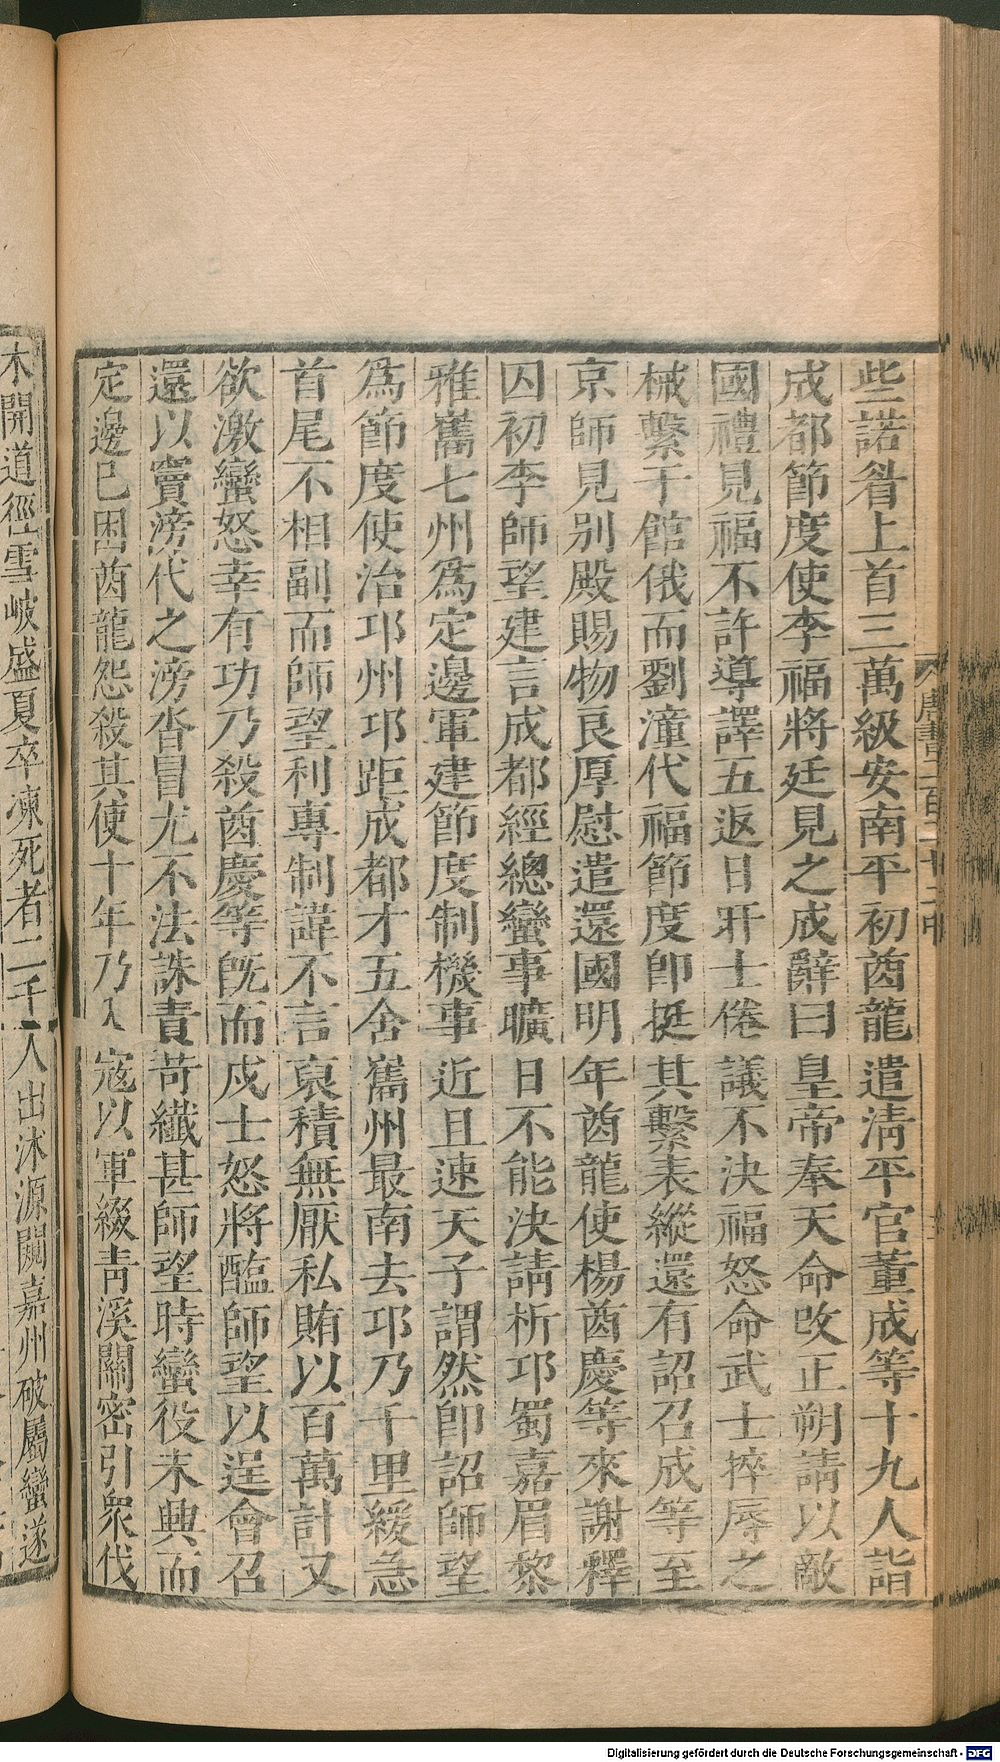 些諾眥上首三萬級安南平初酋龍遣淸平官董成等十九人詣
成都節度使李福將廷見之成辭曰皇帝奉天命改正朔請以敵
國禮見福不許導譯五返日旰士倦議不決福怒命武士捽辱之
械繫于館俄而劉潼代福節度卽挺其繫表縱還有詔召成等至
京師見別殿賜物良厚慰遣還國明年酋龍使楊酋慶等來謝釋
囚初李師望建言成都經總蠻事曠日不能決請析邛蜀嘉眉黎
雅巂七州爲定邊軍建節度制機事近且速天子謂然卽詔師望
爲節度使治邛州邛距成都才五舍巂州最南去邛乃千里緩急
首尾不相副而師望利專制諱不言裒積無厭私賄以百萬計又
欲激蠻怒幸有功乃殺酋慶等旣而戍士怒將醢師望以逞會召
還以竇滂代之滂沓冒尤不法誅責苛纖甚師望時蠻役未興而
定邊已困酋龍怨殺其使十年乃入寇以軍綴靑溪關密引衆伐
木開道徑雪岥盛夏卒凍死者二千人出沐源闕嘉州破屬蠻遂
Digitalisierung gefördert durch die Deutsche Forschungsgemeinschaft - DFG